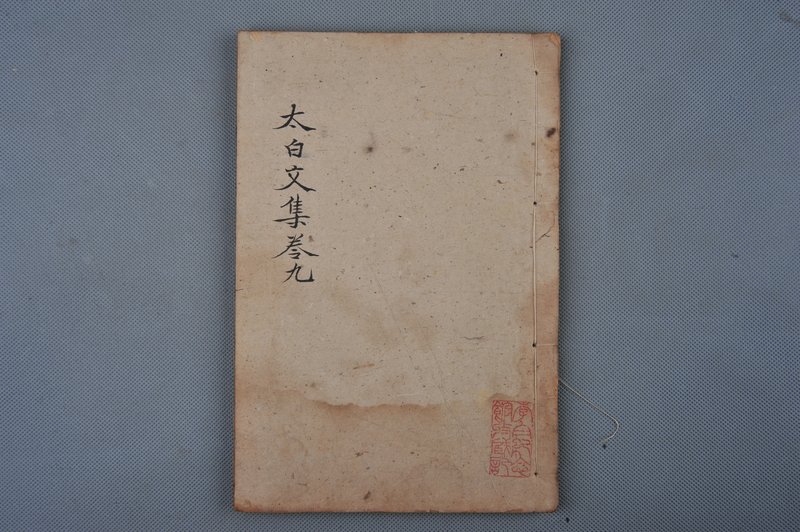 太白文集卷九